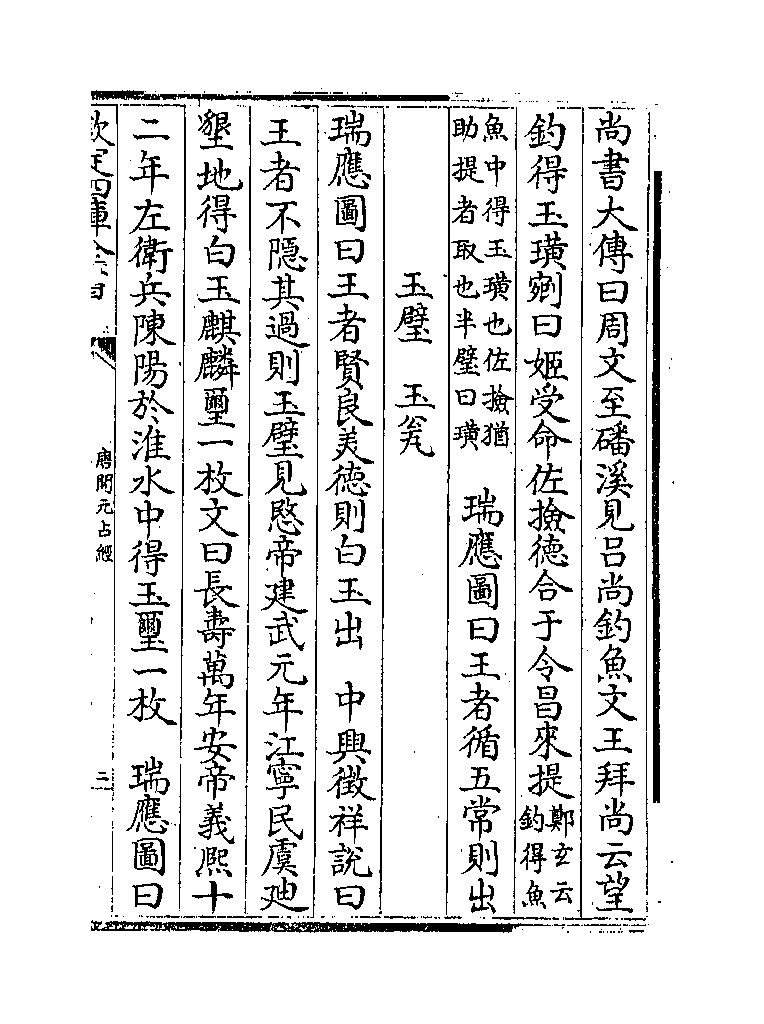 尚書大傳曰周文至磻溪見吕尚釣魚文王拜尚云望
釣得玉璜剜曰姬受命佐撿德合于令昌來提鄭玄云釣得魚
魚中得玉璜也佐撿猶助提者取也半璧曰璜　瑞應圖曰王者循五常則出
玉璧　玉瓮
瑞應圖曰王者賢良美德則白玉出　中興徵祥說曰
王者不隱其過則玉璧見愍帝建武元年江寧民虞廸
墾地得白玉麒麟璽一枚文曰長壽萬年安帝義熙十
二年左衛兵陳陽於淮水中得玉璽一枚　瑞應圖曰
欽定四庫全書
唐開元占經
三